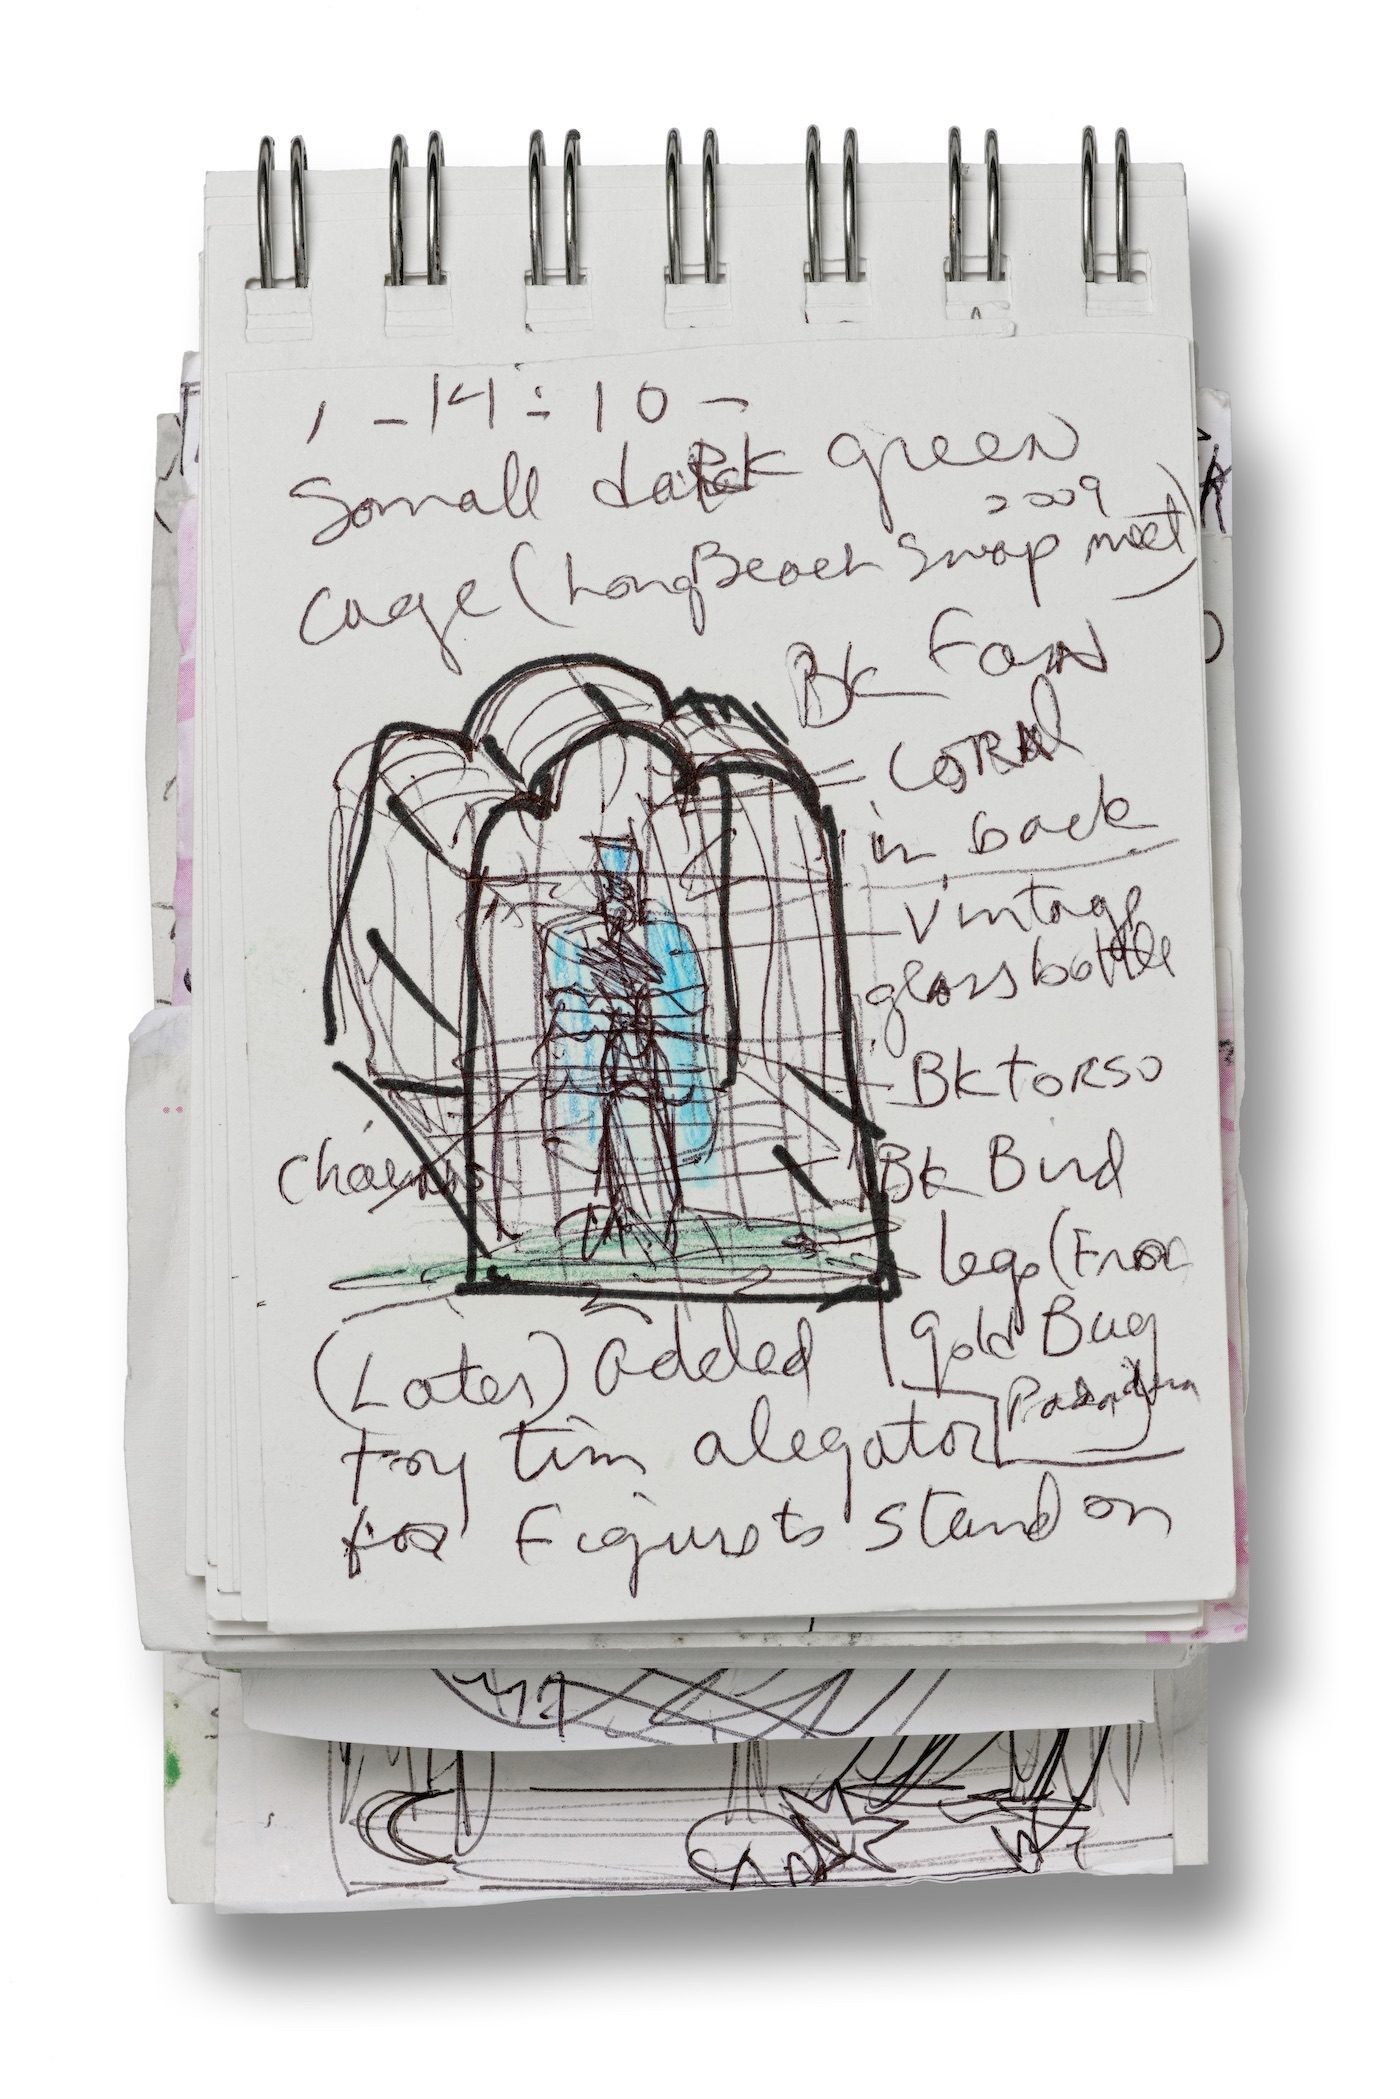 1-14-10-
Small dark green
2009
Cage (Long Beach Swap meet)
Bk Fan
CORAl
in back
Vintage
glass bottle
Bk TORSO
Charms
Bk Bird
legs (From
gold Bug
Pasadena
(Later) added
Toy tim alegator
for Figure to stand on